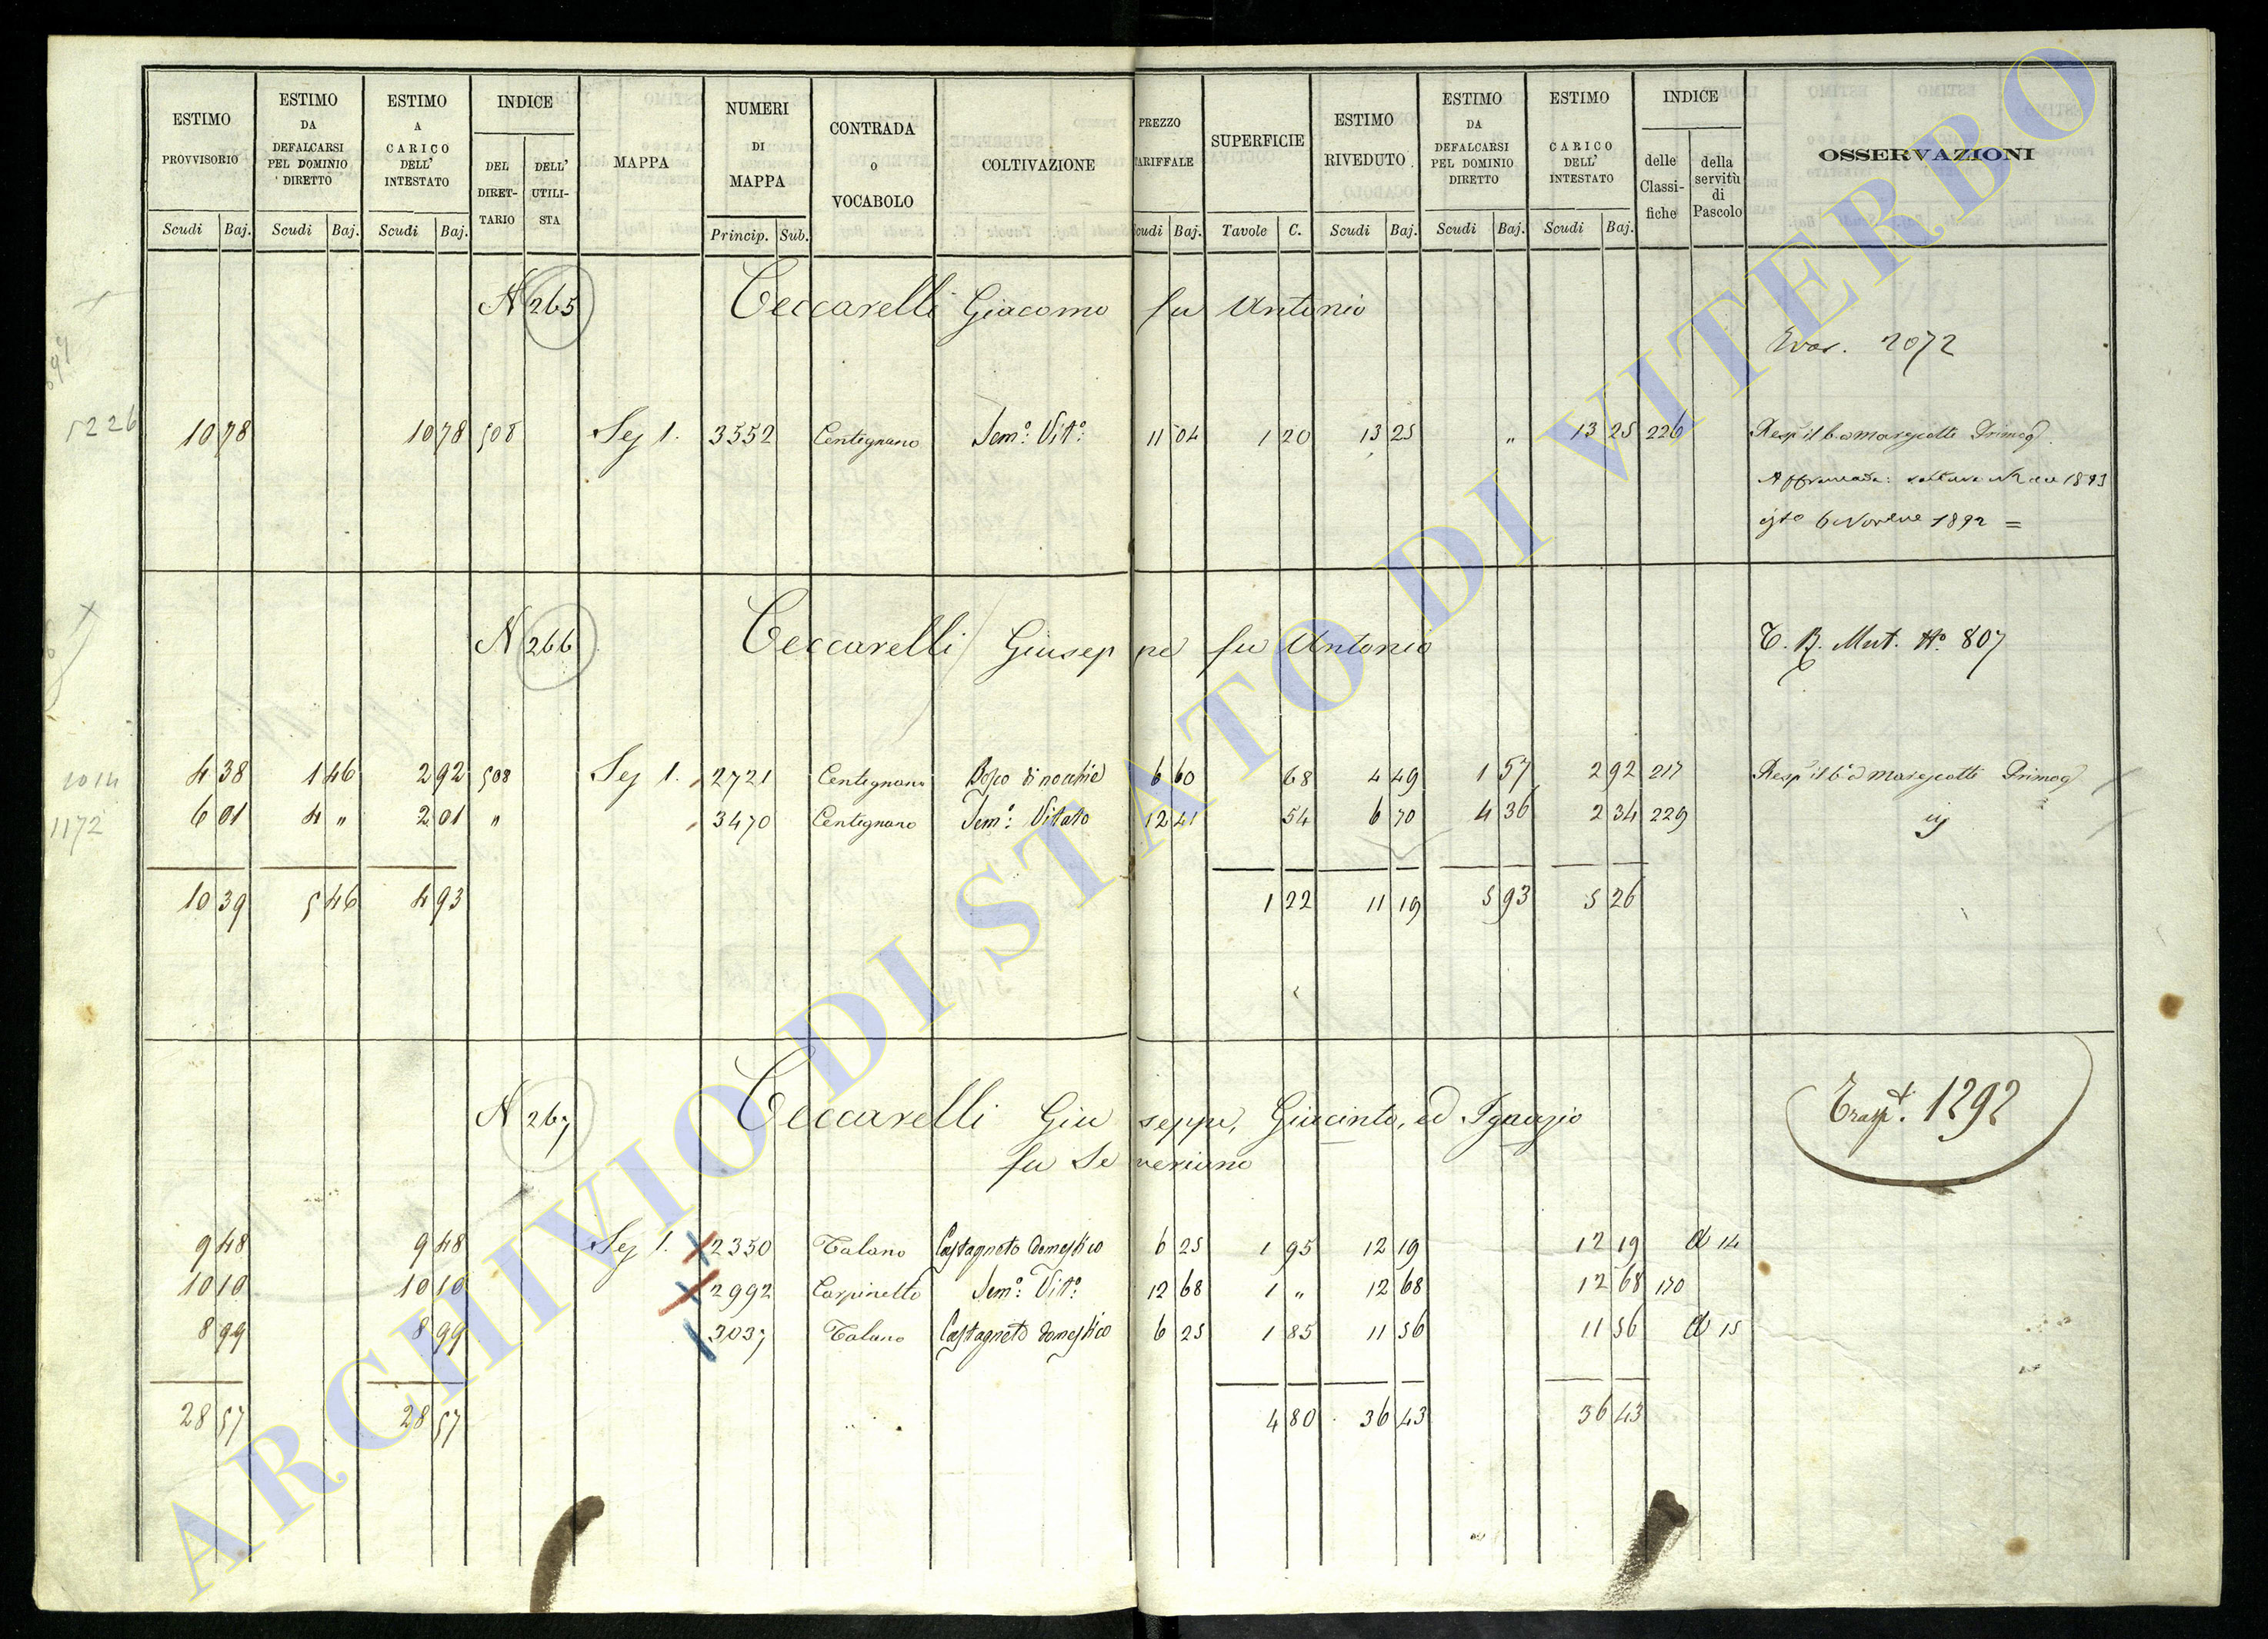 ESTIMO PROVVISORIO Scudi Baj.
ESTIMO DA DEFALCARSI PEL DOMINIO DIRETTO Scudi Baj.
ESTIMO A CARICO DELL' INTESTATO Scudi Baj.
INDICE DEL DIRET- TARIO DELL' UTILI- STA
MAPPA
NUMERI DI MAPPA Princip. Sub.
CONTRADA o VOCABOLO
COLTIVAZIONE
PREZZO TARIFFALE Scudi Baj.
SUPERFICIE Tavole C.
ESTIMO RIVEDUTO Scudi Baj.
ESTIMO DA DEFALCARSI PEL DOMINIO DIRETTO Scudi Baj.
ESTIMO A CARICO DELL' INTESTATO Scudi Baj.
INDICE delle Classi- fiche della servitù di Pascolo
OSSERVAZIONI
N 265 Ceccarelli Giacomo fu Antonio
2072
5226 10 78 10 78 508 Sez 1. 3552 Centignano Sem.º Vit.º 11 04 1 20 13 25 " 13 25 226
1893
1892 =
N 266 Ceccarelli Giuseppe fu Antonio T. B. Mut. Nº 807
1014 4 38 1 46 2 92 508 Sez 1. 2721 Centignano Bosco di nocchie 6 60 68 4 49 1 57 2 92 217
1172 6 01 4 " 2 01 " 3470 Centignano Sem.º Vitato 12 41 54 6 70 4 36 2 34 229
10 39 5 46 4 93 1 22 11 19 5 93 5 26
N 267 Ceccarelli Giuseppe, Giacinto, ed Ignazio Trasp.t 1292
fu Severiano
9 48 9 48 Sez 1. 2350 Talano Castagneto domestico 6 25 1 95 12 19 12 19 A 14
10 10 10 10 2992 Carpinetto Sem.º Vit.º 12 68 1 " 12 68 12 68 170
8 99 8 99 3037 Talano Castagneto domestico 6 25 1 85 11 56 11 56 A 15
28 57 28 57 4 80 36 43 36 43
ARCHIVIO DI STATO DI VITERBO